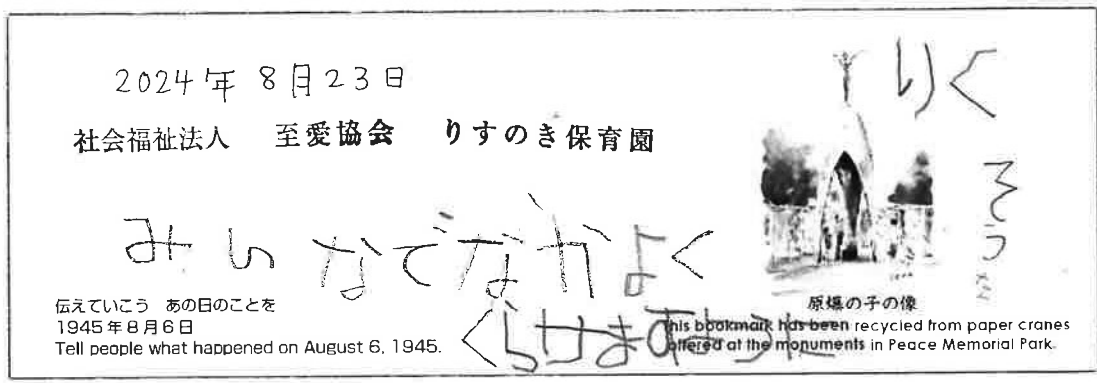 2024年8月23日
社会福祉法人 至愛協会 りすのき保育園
りく
そう
みんなでなかよく
くらせます
伝えていこう あの日のことを
1945年8月6日
Tell people what happened on August 6, 1945.
原爆の子の像
This bookmark has been recycled from paper cranes
offered at the monuments in Peace Memorial Park.